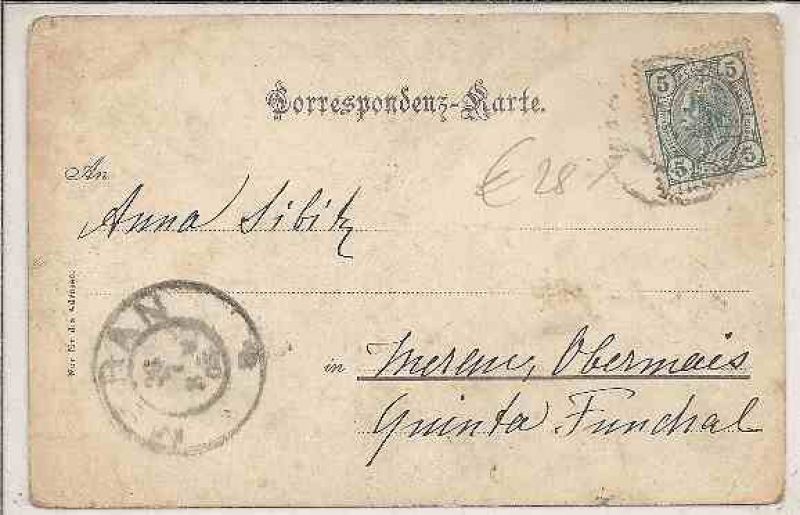 Correspondenz-Karte.
5 5
5 5
An
€ 28
Anna Sibitz
Nur für die Adresse.
RAN
in Meran, Obermais
Quinta Funchal